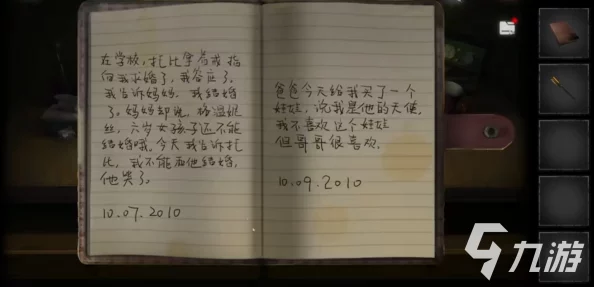 在学校,托比拿着戒指
向我求婚了,我答应了。
我告诉妈妈,我结婚
了。妈妈却说,
丝,六岁女孩子还不能
结婚哦。今天我告诉托
比,我不能和他结婚。
他哭了。
10.07.2010
爸爸今天给我买了一个
娃娃,说我是他的天使。
我不喜欢这个娃娃
但哥哥很喜欢。
10.09.2010
九游